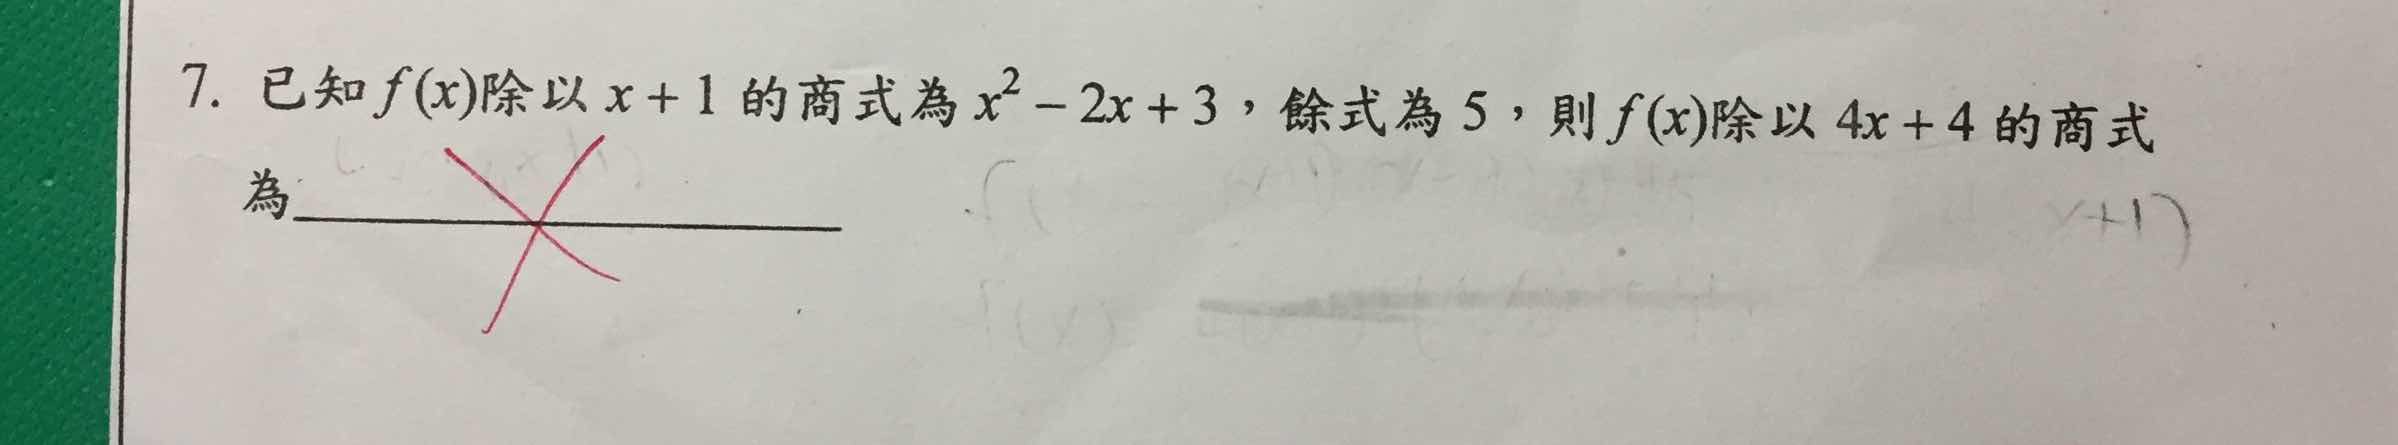 7. 已知 f(x)除以 x + 1 的商式為 x² − 2x + 3，餘式為 5，則 f(x)除以 4x + 4 的商式
為
x+1)